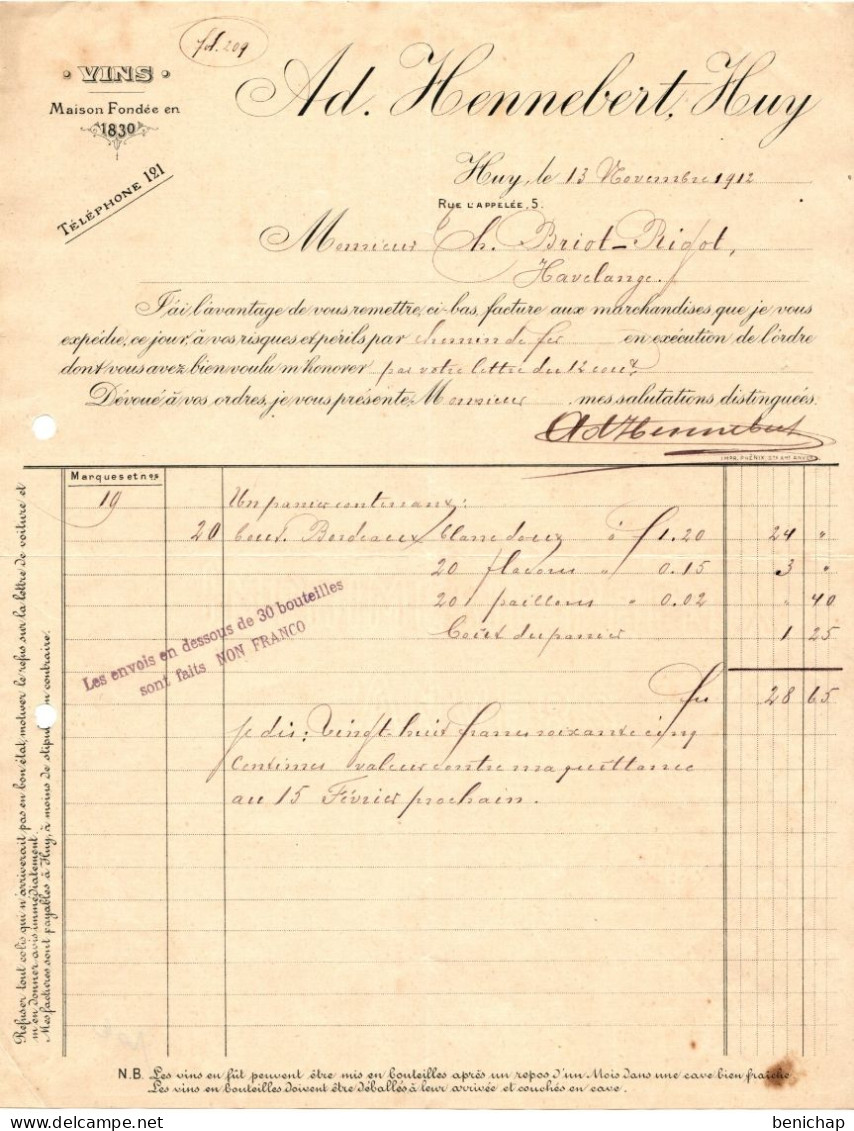 fol. 209
VINS
Maison Fondée en
1830
TÉLÉPHONE 121
Ad. Hennebert, Huy
Huy, le 13 Novembre 1912
RUE L'APPELÉE, 5.
Monsieur Ch. Briot-Rigot,
Havelange.
J'ai l'avantage de vous remettre, ci-bas, facture aux marchandises que je vous
expédie, ce jour, à vos risques et périls par chemin de fer en exécution de l'ordre
dont vous avez bien voulu m'honorer par votre lettre du 12 cour.t
Dévoué à vos ordres, je vous présente, Monsieur mes salutations distinguées.
Ad Hennebert
Marques et nos
19 Un panier contenant:
20 bout. Bordeaux blanc doux à f 1.20 24 "
20 flacons à 0.15 3 "
20 paillons " 0.02 " 40
Coût du panier 1 25
frs 28 65
Les envois en dessous de 30 bouteilles
sont faits NON FRANCO
Je dis: Vingt-huit francs soixante cinq
centimes valeur contre ma quittance
au 15 Février prochain.
Refuser tout colis qui n'arriverait pas en bon état, motiver le refus sur la lettre de voiture et
m'en donner avis immédiatement.
Mes factures sont payables à Huy, à moins de stipulation contraire.
N.B. Les vins en fût peuvent être mis en bouteilles après un repos d'un Mois dans une cave bien fraîche
Les vins en bouteilles doivent être déballés à leur arrivée et couchés en cave.
delcampe.net
benichap